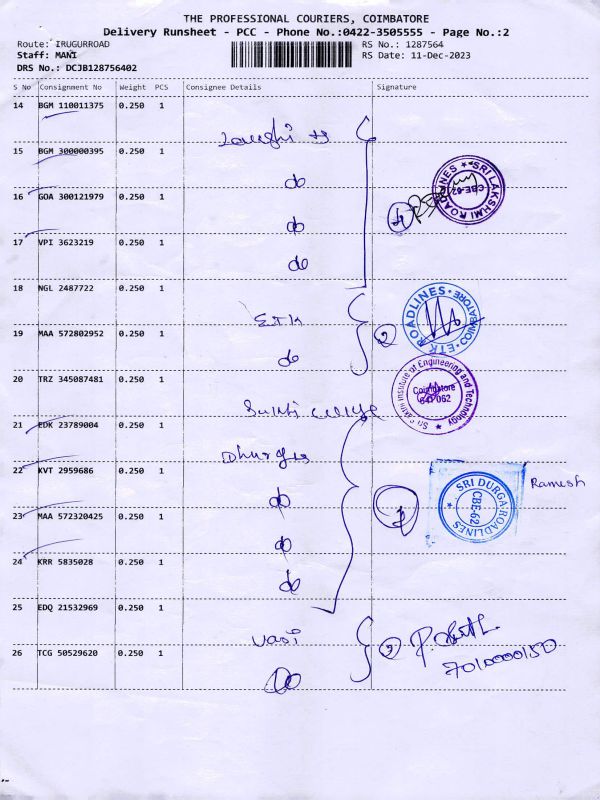 THE PROFESSIONAL COURIERS, COIMBATORE
Delivery Runsheet - PCC - Phone No.:0422-3505555 - Page No.:2
Route: IRUGURROAD
RS No.: 1287564
Staff: MANI
RS Date: 11-Dec-2023
DRS No.: DCJB128756402
S No Consignment No Weight PCS Consignee Details Signature
14 BGM 110011375 0.250 1
15 BGM 300000395 0.250 1
do
SRI LAKSHMI ROADLINES
CBE-62
16 GOA 300121979 0.250 1
do
4
17 VPI 3623219 0.250 1
do
18 NGL 2487722 0.250 1
ETK
ROADLINES
COIMBATORE
E.T.K.
2
19 MAA 572802952 0.250 1
do
20 TRZ 345087481 0.250 1
Sri Sakthi Institute of Engineering and Technology
Coimbatore
641 062
21 EDK 23789004 0.250 1
22 KVT 2959686 0.250 1
do
SRI DURGA ROADLINES
CBE-62
Ramesh
23 MAA 572320425 0.250 1
do
24 KRR 5835028 0.250 1
do
25 EDQ 21532969 0.250 1
Vasi
2
26 TCG 50529620 0.250 1
do